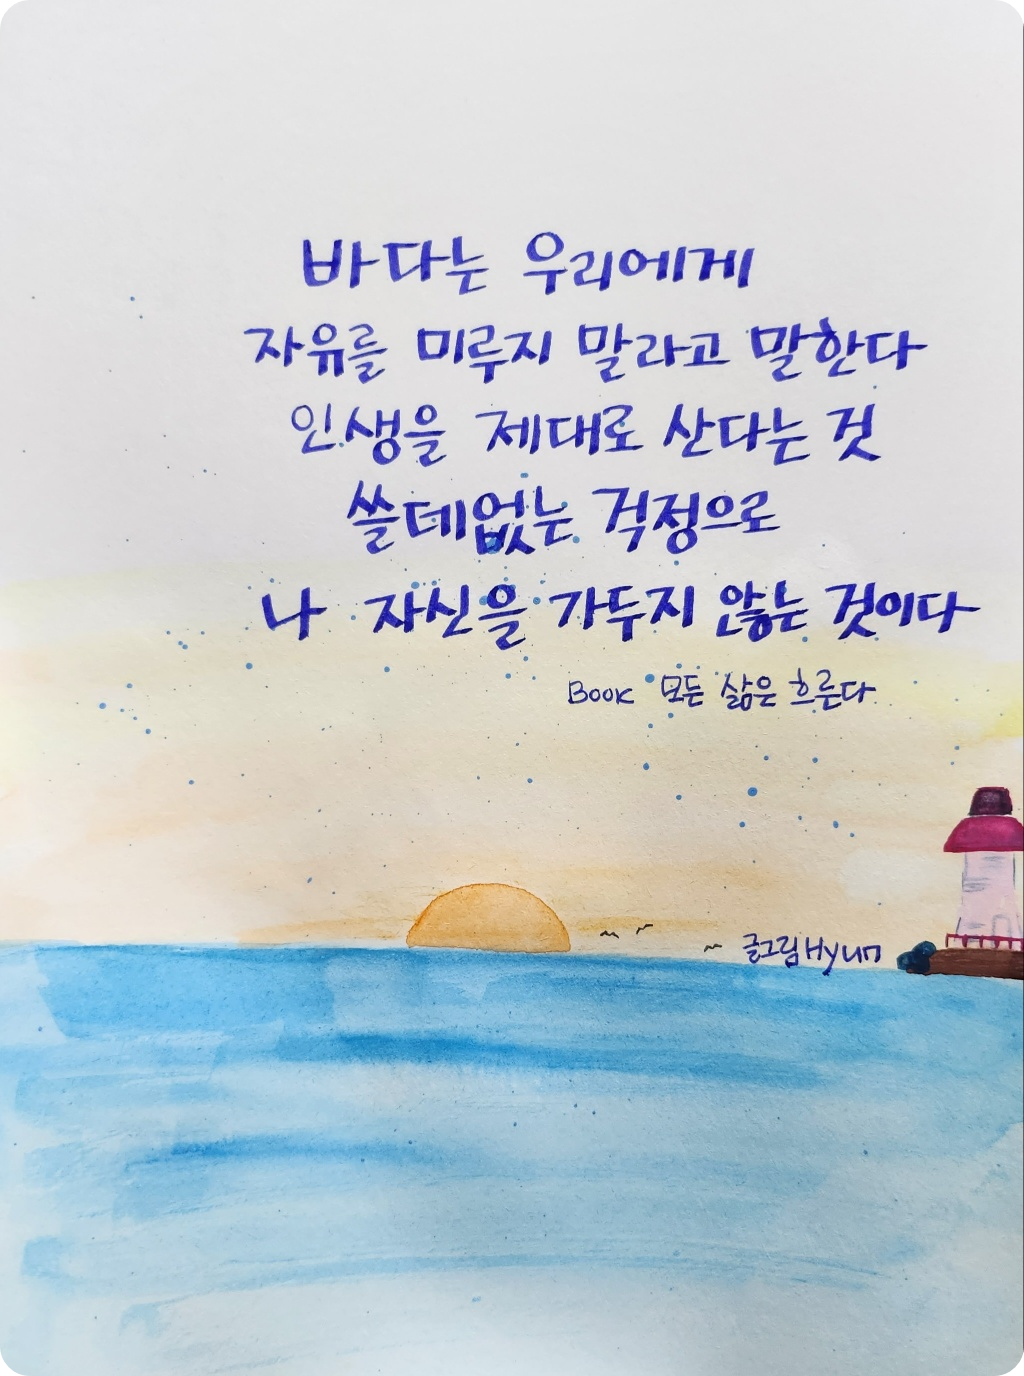 바다는 우리에게
자유를 미루지 말라고 말한다
인생을 제대로 산다는 것
쓸데없는 걱정으로
나 자신을 가두지 않는 것이다
Book 모든 삶은 흐른다
글그림 Hyun